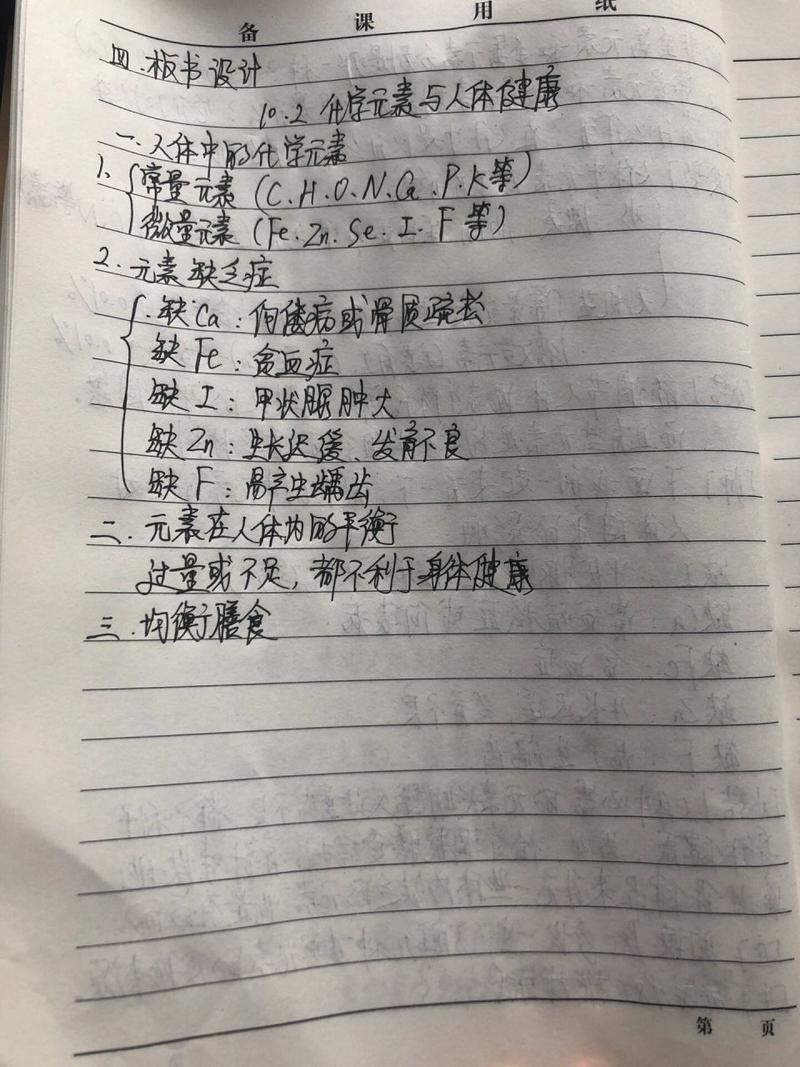 备 课 用 纸
四.板书设计
10.2 化学元素与人体健康
一.人体中的化学元素
1.{常量元素(C.H.O.N.Ca.P.K等)
微量元素(Fe.Zn.Se.I.F等)
2.元素缺乏症
{.缺Ca:佝偻病或骨质疏松
缺Fe:贫血症
缺I:甲状腺肿大
缺Zn:生长迟缓、发育不良
缺F:易产生龋齿
二.元素在人体内的平衡
过量或不足,都不利于身体健康
三.均衡膳食
第 页